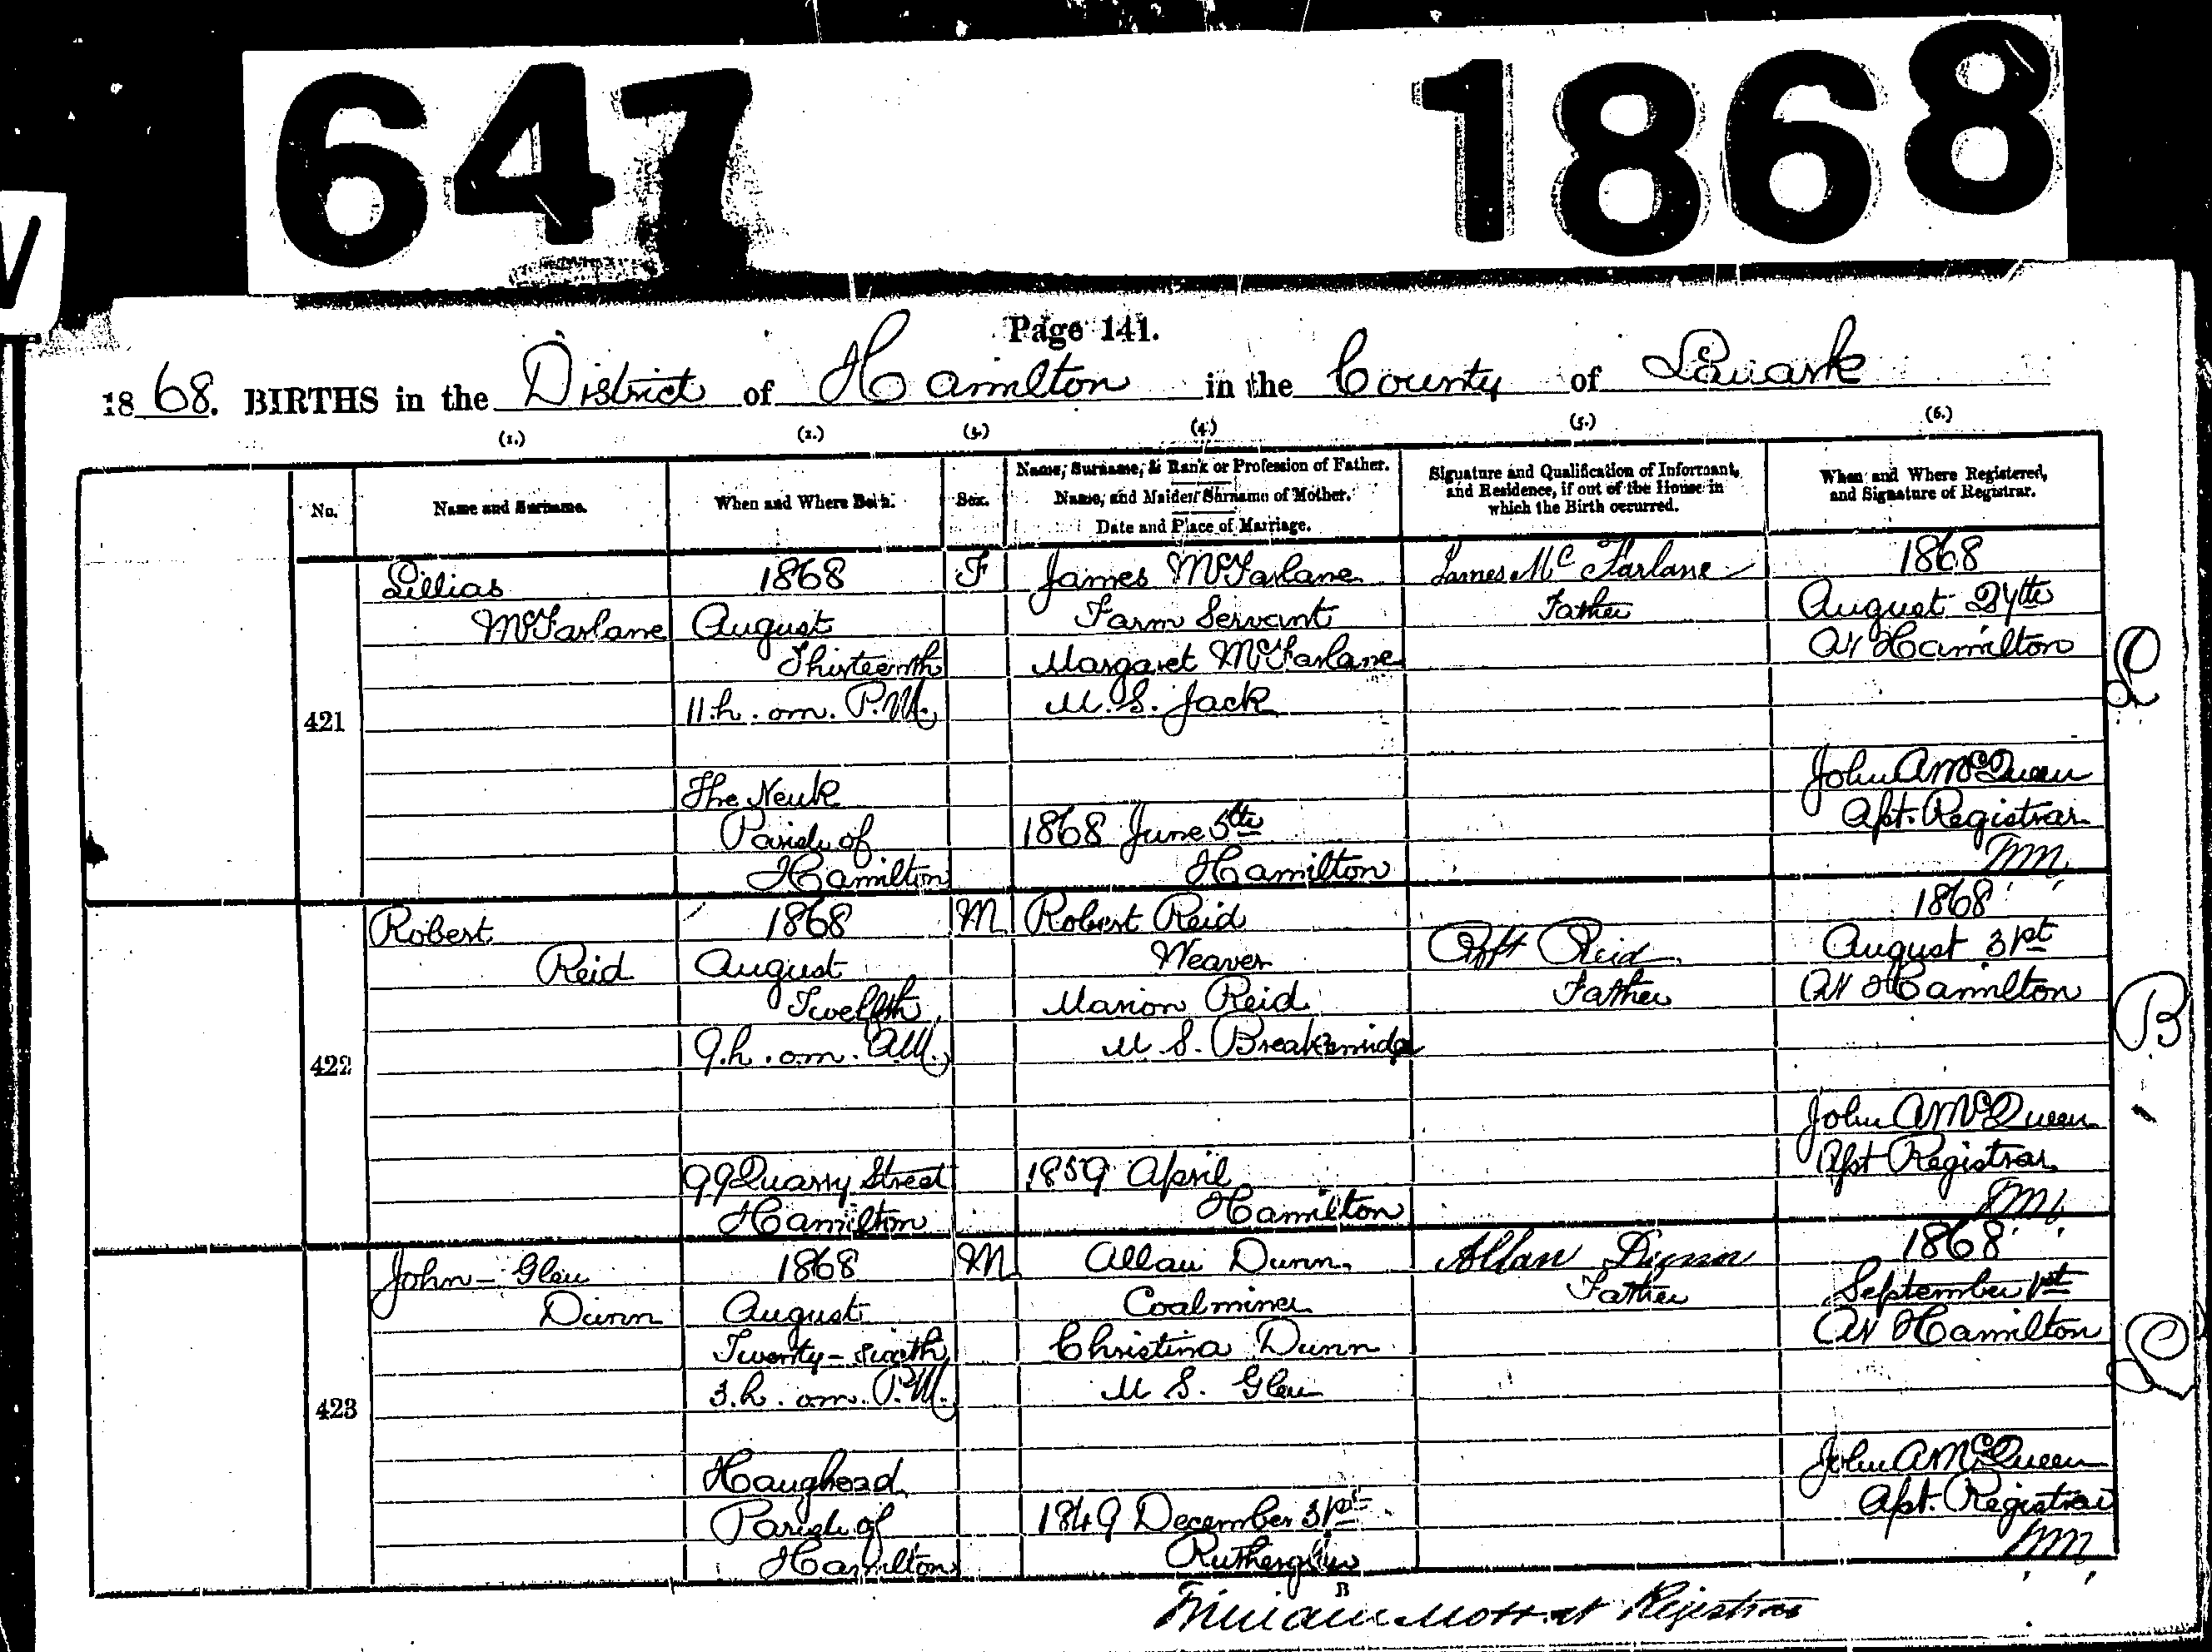 647 1868
Page 141.
1868. BIRTHS in the District of Hamilton in the County of Lanark
(1.) (2.) (3.) (4.) (5.) (6.)
No. Name and Surname. When and Where Born. Sex. Name, Surname, & Rank or Profession of Father. Name, and Maiden Surname of Mother. Date and Place of Marriage. Signature and Qualification of Informant, and Residence, if out of the House in which the Birth occurred. When and Where Registered, and Signature of Registrar.
421
Lillias
McFarlane
1868
August
Thirteenth
11.h. om. P.M.
The Neuk
Parish of
Hamilton
F
James McFarlane
Farm Servant
Margaret McFarlane
M.S. Jack
1868 June 5th
Hamilton
James McFarlane
Father
1868
August 27th
At Hamilton
John A McQueen
Asst. Registrar
422
Robert
Reid
1868
August
Twelfth
9.h. om. A.M.
99 Quarry Street
Hamilton
M
Robert Reid
Weaver
Marion Reid
M.S. Breakenridge
1859 April
Hamilton
Reid
Father
1868
August 31st
At Hamilton
John A McQueen
Asst Registrar
423
John - Glen
Dunn
1868
August
Twenty-sixth
3.h. om. P.M.
Haughead
Parish of
Hamilton
M
Allan Dunn
Coalminer
Christina Dunn
M S. Glen
1849 December 31st
Rutherglen
Allan Dunn
Father
1868
September 1st
At Hamilton
John A McQueen
Asst. Registrar
B
Registrar
L
B
L